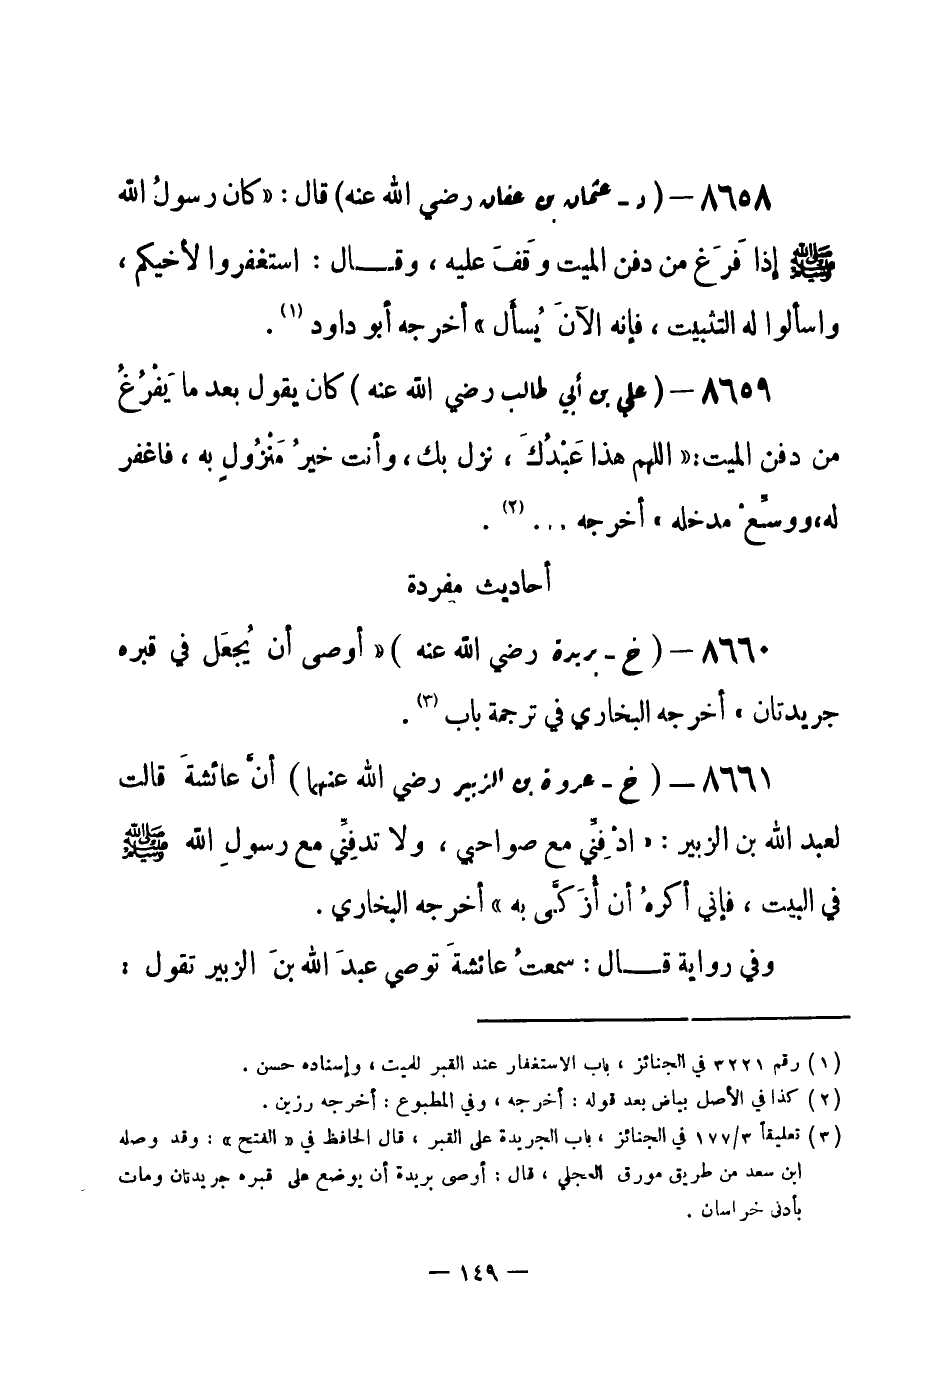 ٨٦٥٨ — ( د - عثمان بن عفان رضي الله عنه) قال : « كان رسولُ الله
ﷺ إذا فَرَغ من دفن الميت وَقفَ عليه ، وقـــال : استغفروا لأخيكم ،
واسألوا له التثبيت ، فإنه الآنَ يُسأَل » أخرجه أبو داود (١) .
٨٦٥٩ — ( علي بن أبي طالب رضي الله عنه ) كان يقول بعد ما يَفْرُغُ
من دفن الميت: « اللهم هذا عَبْدُكَ ، نزل بك، وأنت خيرُ مَنْزُولٍ به ، فاغفر
له، ووسِّعْ مدخله » أخرجه ... (٢) .
أحاديث مفردة
٨٦٦٠ — ( خ - بريدة رضي الله عنه ) « أوصى أن يُجعَل في قبره
جريدتان » أخرجه البخاري في ترجمة باب (٣) .
٨٦٦١ — ( خ - عروة بن الزبير رضي الله عنهما ) أنَّ عائشةَ قالت
لعبد الله بن الزبير : « ادْفِنِّي مع صواحبي ، ولا تدفِنِّي مع رسولِ الله ﷺ
في البيت ، فإني أكرهُ أن أُزَكَّى به » أخرجه البخاري .
وفي رواية قـــال : سمعتُ عائشةَ توصي عبدَ الله بنَ الزبير تقول :
(١) رقم ٣٢٢١ في الجنائز ، باب الاستغفار عند القبر للميت ، وإسناده حسن .
(٢) كذا في الأصل بياض بعد قوله : أخرجه ، وفي المطبوع : أخرجه رزين .
(٣) تعليقاً ١٧٧/٣ في الجنائز ، باب الجريدة على القبر ، قال الحافظ في « الفتح » : وقد وصله
ابن سعد من طريق مورق العجلي ، قال : أوصى بريدة أن يوضع على قبره جريدتان ومات
بأدنى خراسان .
— ١٤٩ —